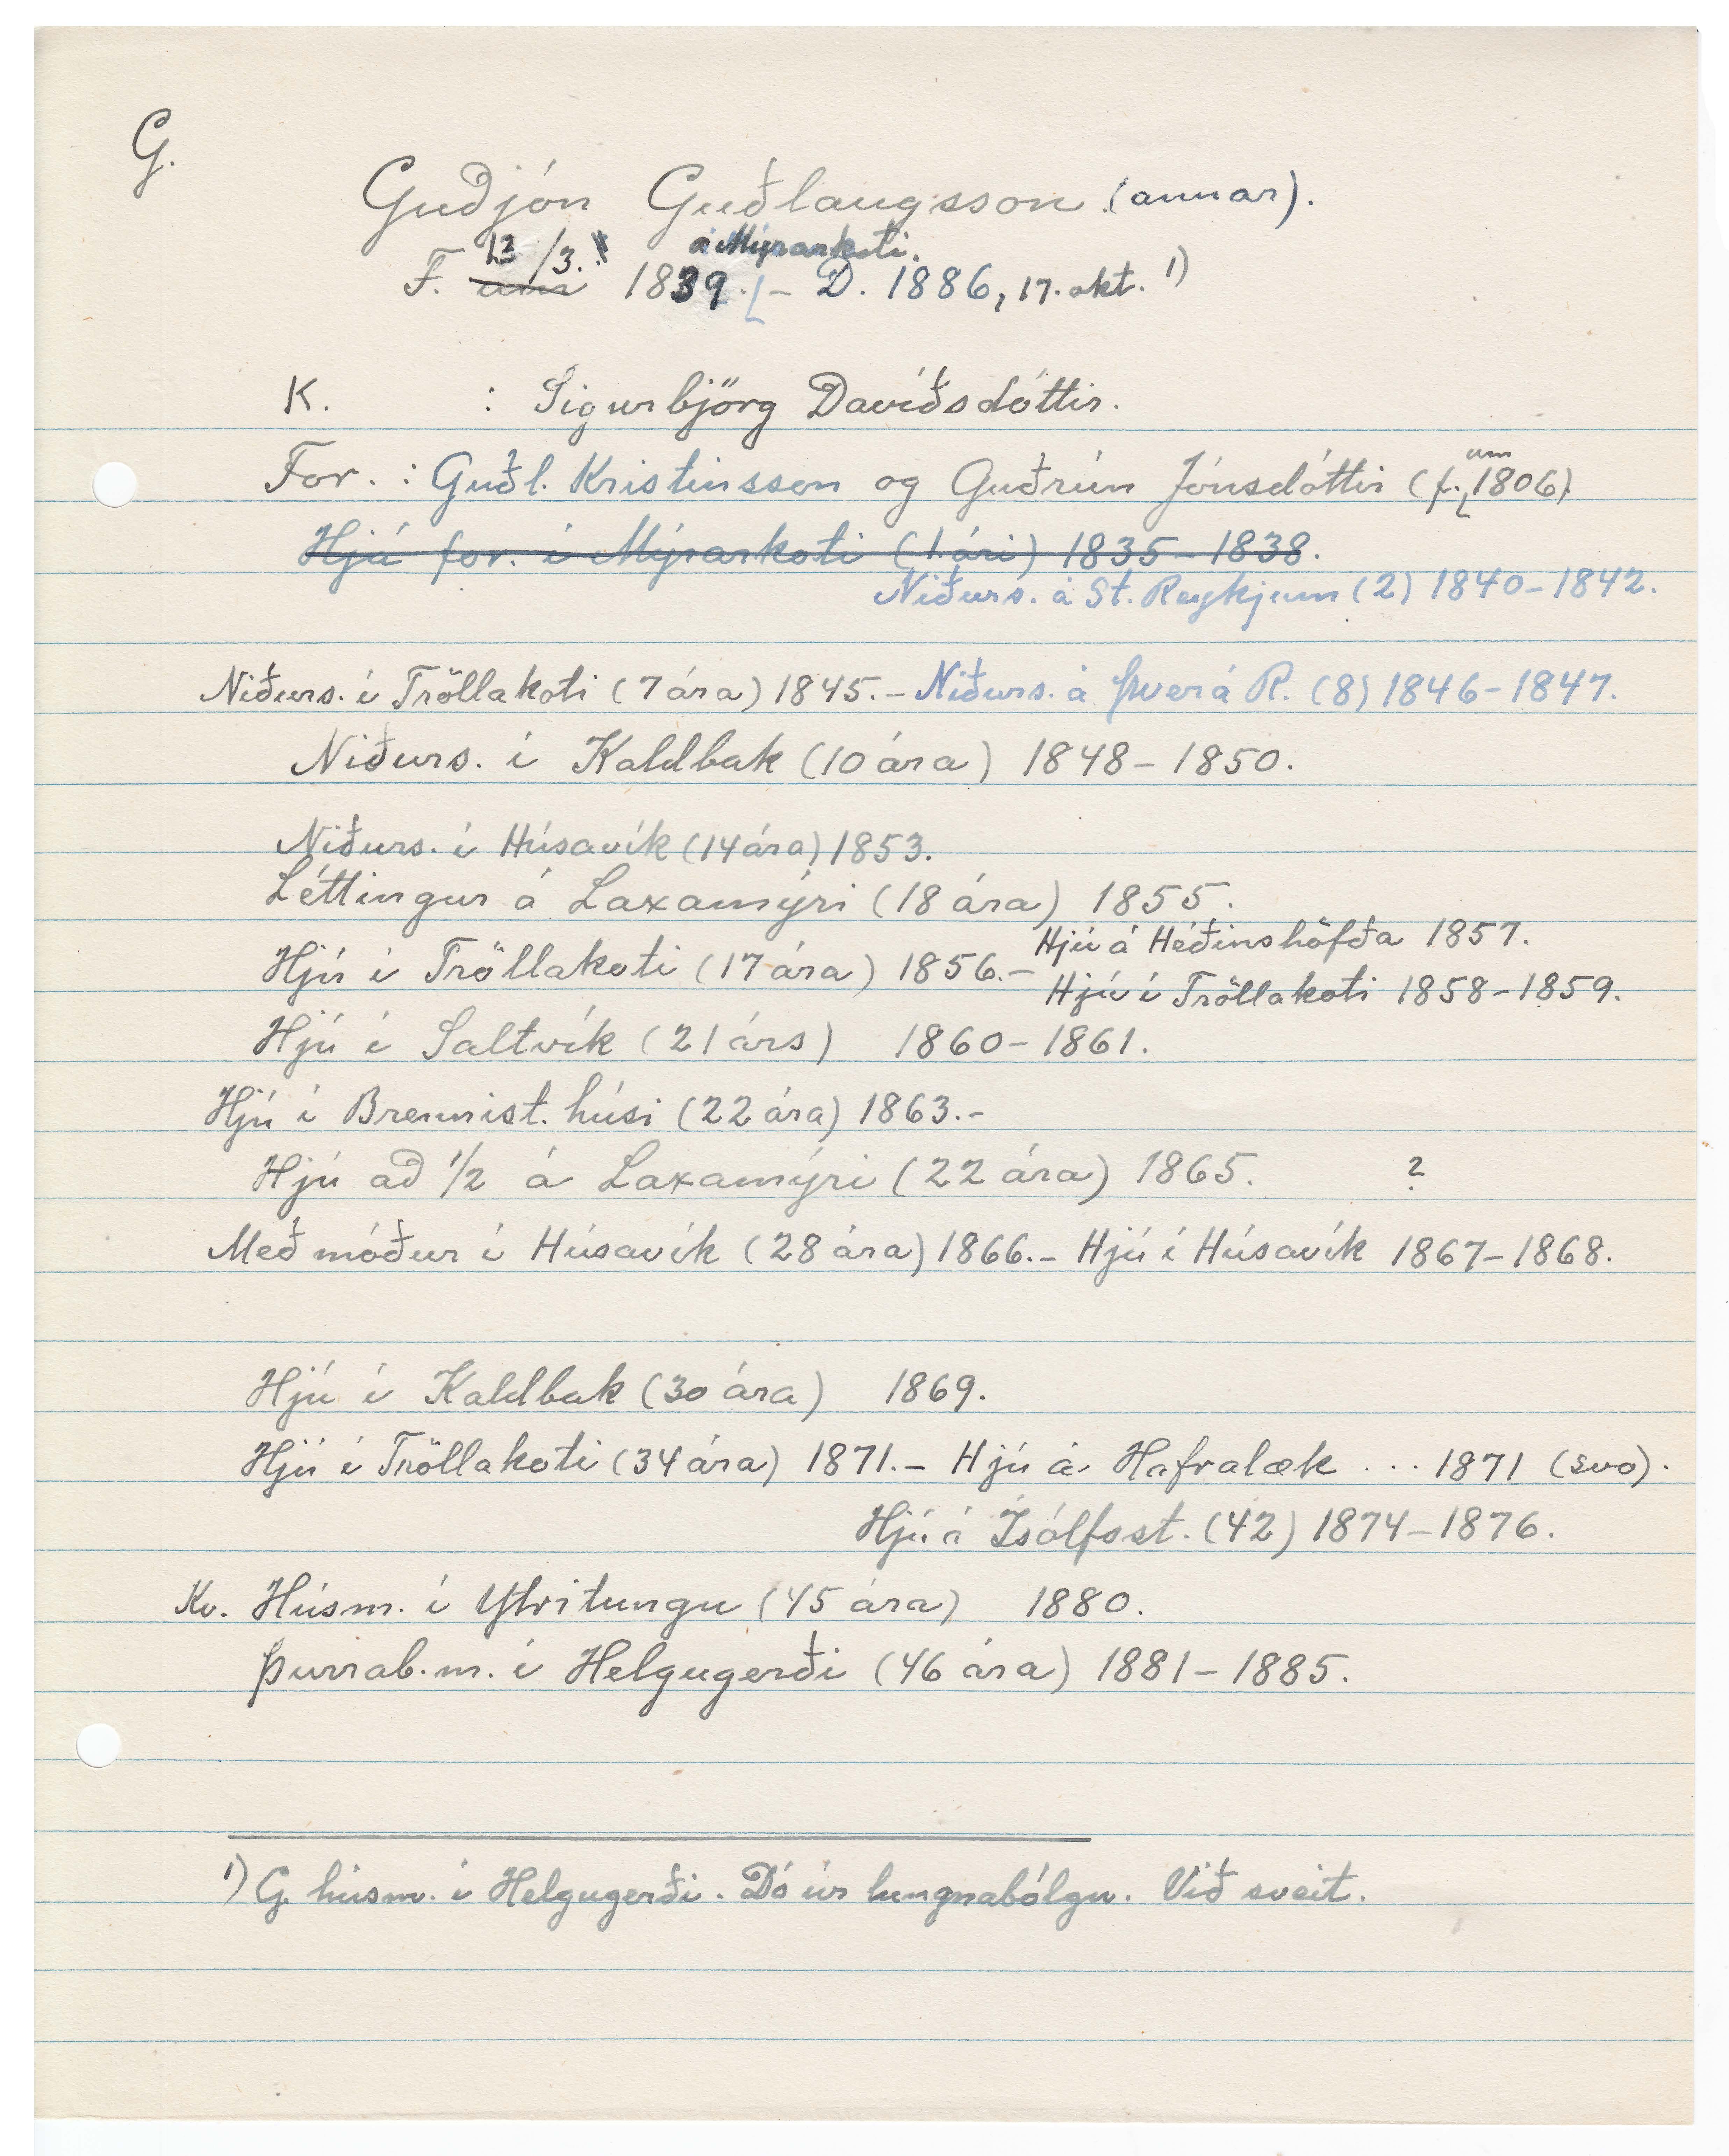 G.
Guðjón Guðlaugsson (annar).
13/3. á Mýrarkoti.
F. um 1839. – D. 1886, 17. okt. 1)
K. : Sigurbjörg Davíðsdóttir.
um
For. : Guðl. Kristinsson og Guðrún Jónsdóttir (f. 1806)
Hjá for. í Mýrarkoti (1. ári) 1835–1838.
Niðurs. á St. Reykjum (2) 1840–1842.
Niðurs. í Tröllakoti (7 ára) 1845. – Niðurs. á Þverá R. (8) 1846–1847.
Niðurs. í Kaldbak (10 ára) 1848–1850.
Niðurs. í Húsavík (14 ára) 1853.
Léttingur á Laxamýri (18 ára) 1855.
Hjú á Héðinshöfða 1857.
Hjú í Tröllakoti (17 ára) 1856. –
Hjú í Tröllakoti 1858–1859.
Hjú í Saltvík (21 árs) 1860–1861.
Hjú í Brennist. húsi (22 ára) 1863. –
Hjú að 1/2 á Laxamýri (22 ára) 1865. ?
Með móður í Húsavík (28 ára) 1866. – Hjú í Húsavík 1867–1868.
Hjú í Kaldbak (30 ára) 1869.
Hjú í Tröllakoti (34 ára) 1871. – Hjú á Hafralæk ... 1871 (svo).
Hjú á Ísólfsst. (42) 1874–1876.
Kv. Húsm. í Ytritungu (45 ára) 1880.
Þurrab.m. í Helgugerði (46 ára) 1881–1885.
1) G. húsm. í Helgugerði. Dó úr lungnabólgu. Við sveit.